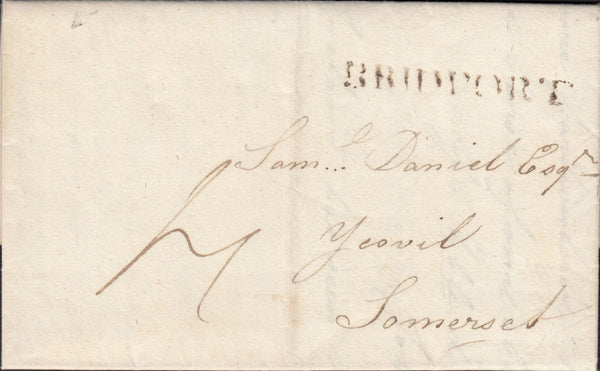 BRIDPORT
Sam.l Daniel Esqr
Yeovil
Somerset